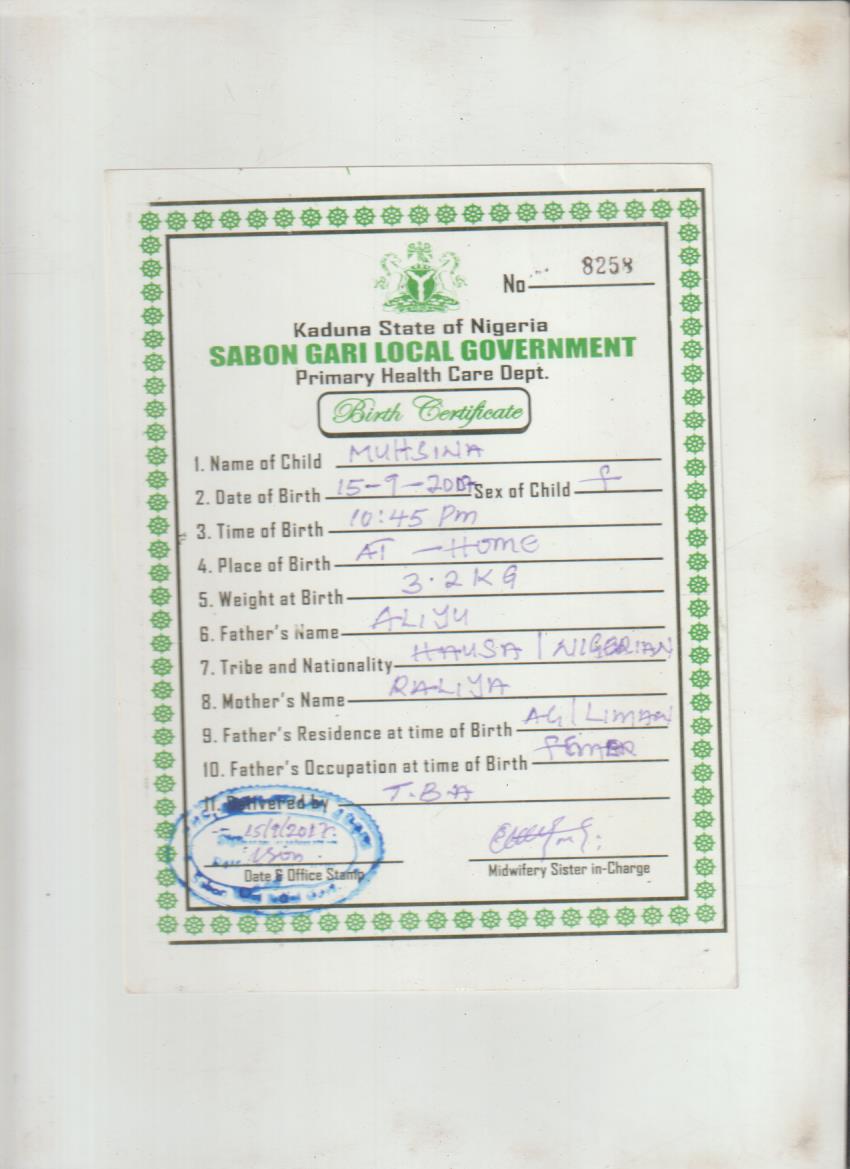 No 8258
Kaduna State of Nigeria
SABON GARI LOCAL GOVERNMENT
Primary Health Care Dept.
Birth Certificate
1. Name of Child MUHSINA
2. Date of Birth 15-9-2007 Sex of Child f
3. Time of Birth 10:45 Pm
4. Place of Birth AT - HOME
5. Weight at Birth 3.2KG
6. Father's Name ALIYU
7. Tribe and Nationality HAUSA / NIGERIAN
8. Mother's Name RALIYA
9. Father's Residence at time of Birth AG/LIMAN
10. Father's Occupation at time of Birth
11. Delivered by T.B.A
15/9/2017
Date & Office Stamp
Midwifery Sister in-Charge